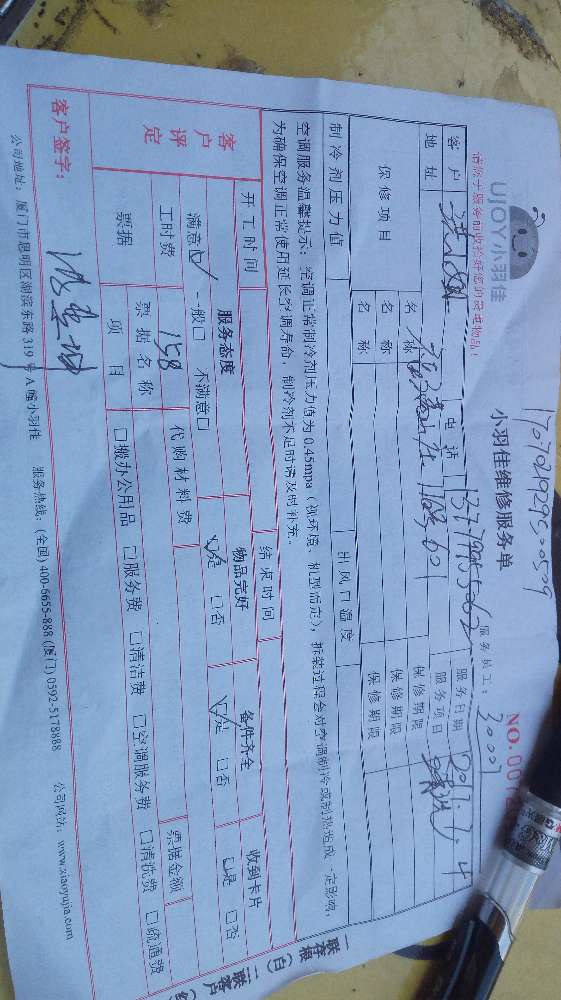 170702192950509
UJOY小羽佳
小羽佳维修服务单
服务员工：
NO.001
客户
电话
服务日期
2017.7.4
地址
601
服务项目
保修项目
名称
保修期限
名称
保修期限
名称
保修期限
制冷剂压力值
出风口温度
空调服务温馨提示：空调正常制冷剂压力值为0.45mpa（视环境、机型而定），拆装过程会对空调制冷或制热造成一定影响，
为确保空调正常使用延长空调寿命，制冷剂不足时请及时补充。
客户评定
开工时间
结束时间
服务态度
物品完好
备件齐全
收到卡片
满意☑ 一般□ 不满意□
☑是 □否
☑是 □否
□是 □否
工时费
158
代购材料费
票据金额
票据
票据名称
项目
□搬办公用品 □服务费 □清洁费 □空调服务费 □清洗费 □疏通费
客户签字：
公司地址：厦门市思明区湖滨东路319号A幢小羽佳 服务热线：(全国) 400-6655-888 (厦门) 0592-5178888 公司网站：www.xiaoyujia.com
一联存根（白）二联客户